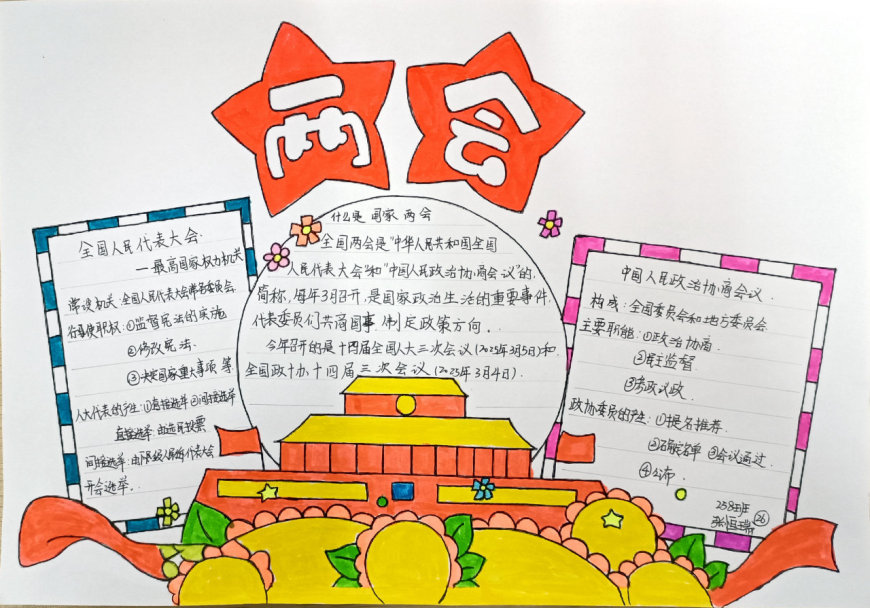 两会
全国人民代表大会
——最高国家权力机关
常设机关:全国人民代表大会常务委员会
行使职权:①监督宪法的实施
②修改宪法
③决定国家重大事项 等
人大代表的产生:①直接选举 ②间接选举
直接选举:由选民投票
间接选举:由下一级人民代表大会
开会选举.
什么是 国家 两会
全国两会是"中华人民共和国全国
人民代表大会"和"中国人民政治协商会议"的
简称,每年3月召开,是国家政治生活的重要事件,
代表委员们共商国事,制定政策方向.
今年召开的是十四届全国人大三次会议(2025年3月5日)和
全国政协十四届三次会议(2025年3月4日).
中国人民政治协商会议.
构成:全国委员会和地方委员会
主要职能:①政治协商.
②民主监督.
③参政议政.
政协委员的产生:①提名推荐.
②确定名单 ③会议通过.
④公布.
258班
张恒瑞 26